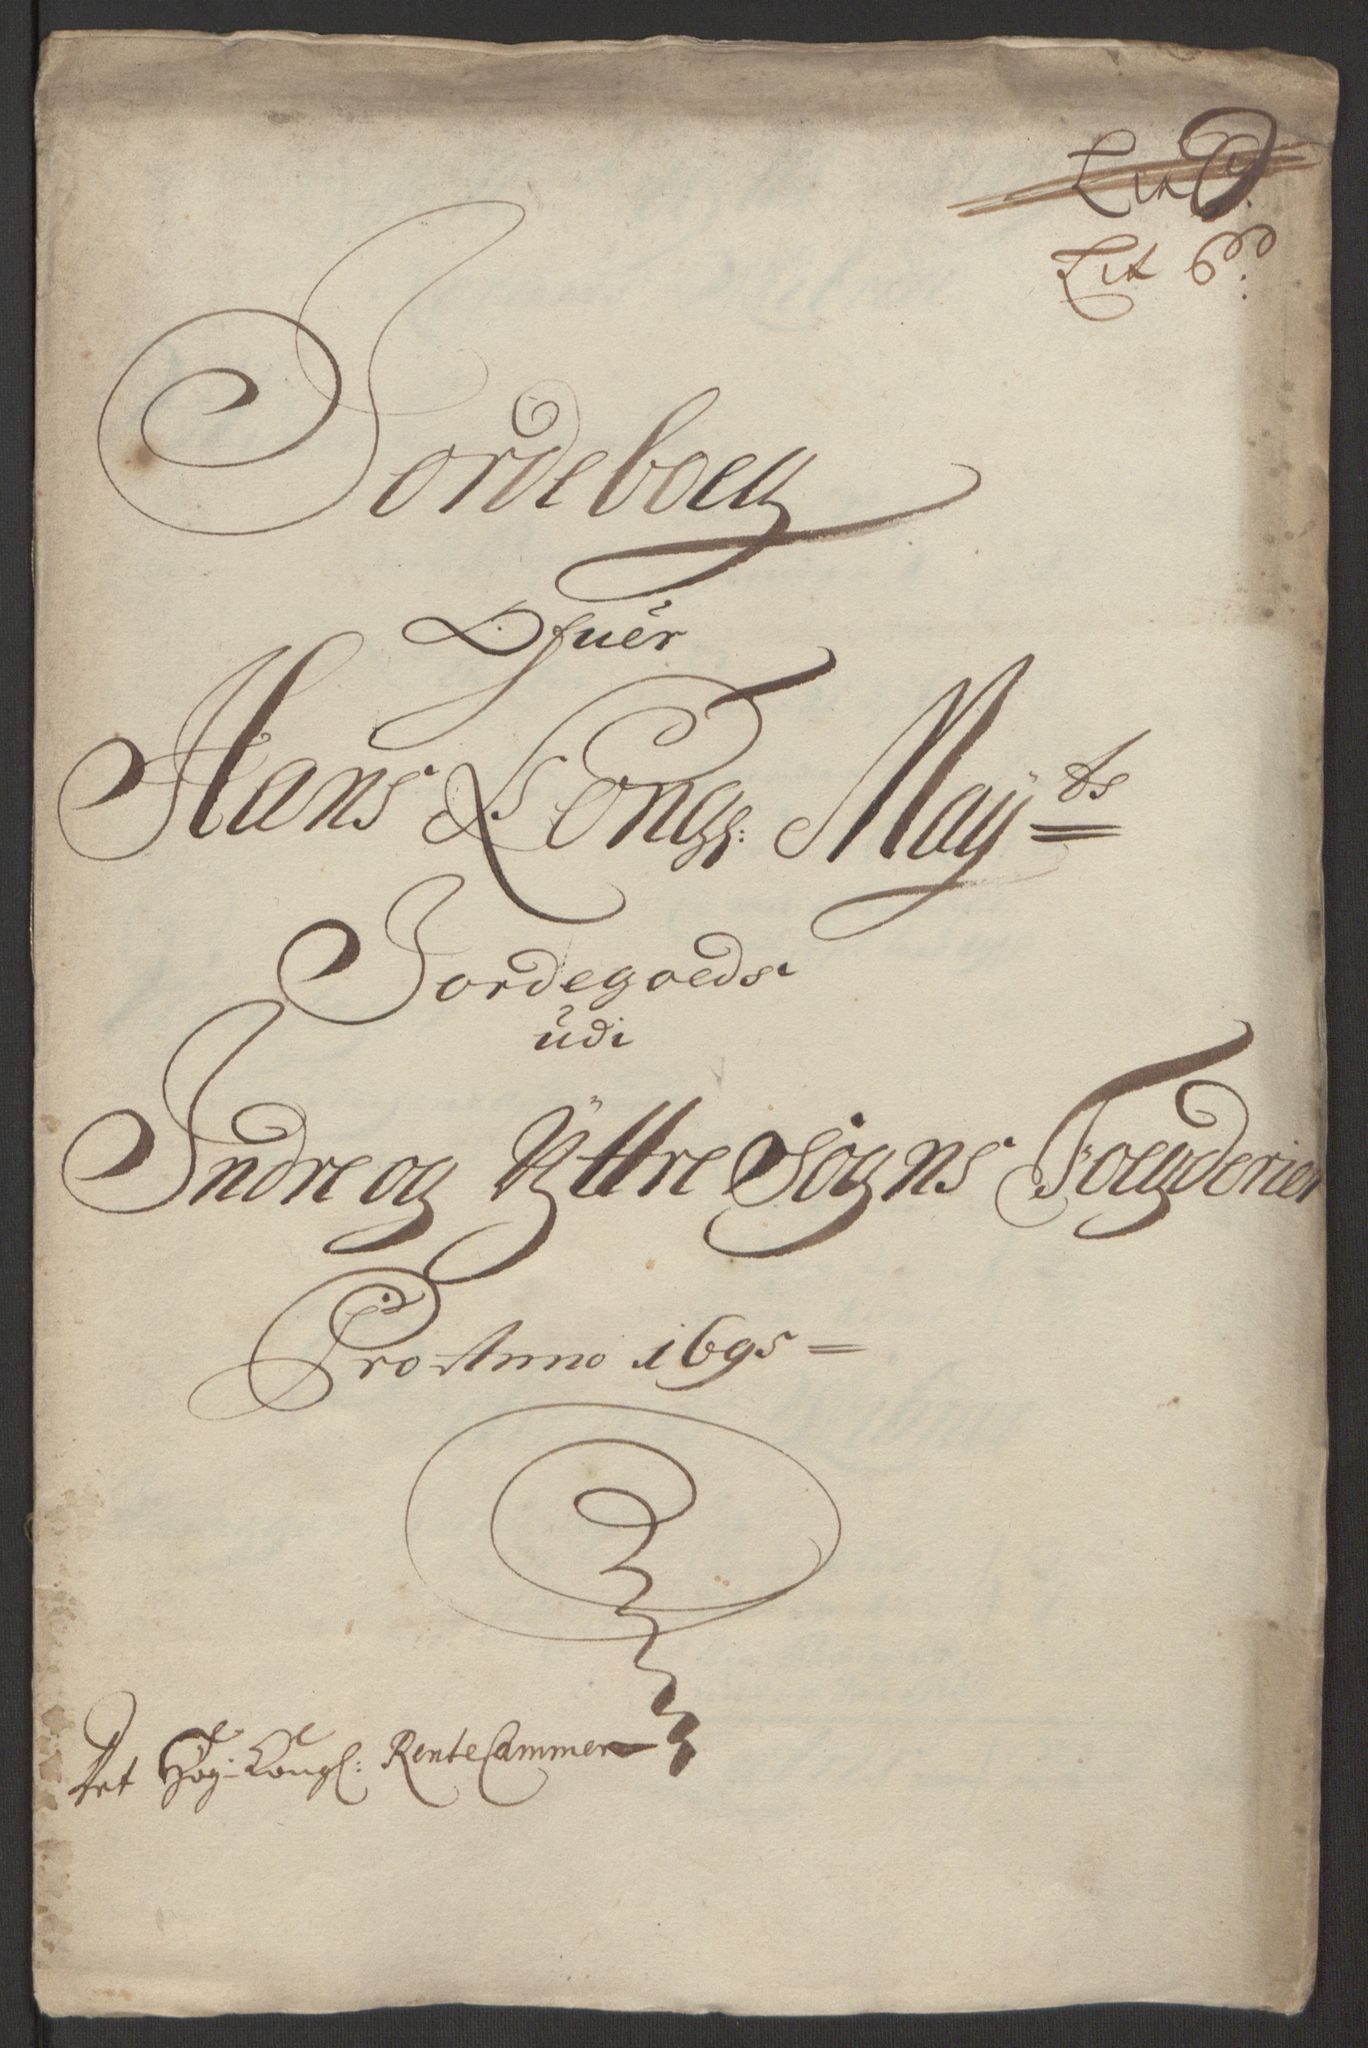 Lit
Lit
Jordeboeg
Ofuer
Hans Kongl: Mayts
Jordegoeds
udi
Indre og Ÿttre Sogns Foegderier
Pro Anno 1695
Det Høy-Kongl: RenteCammer